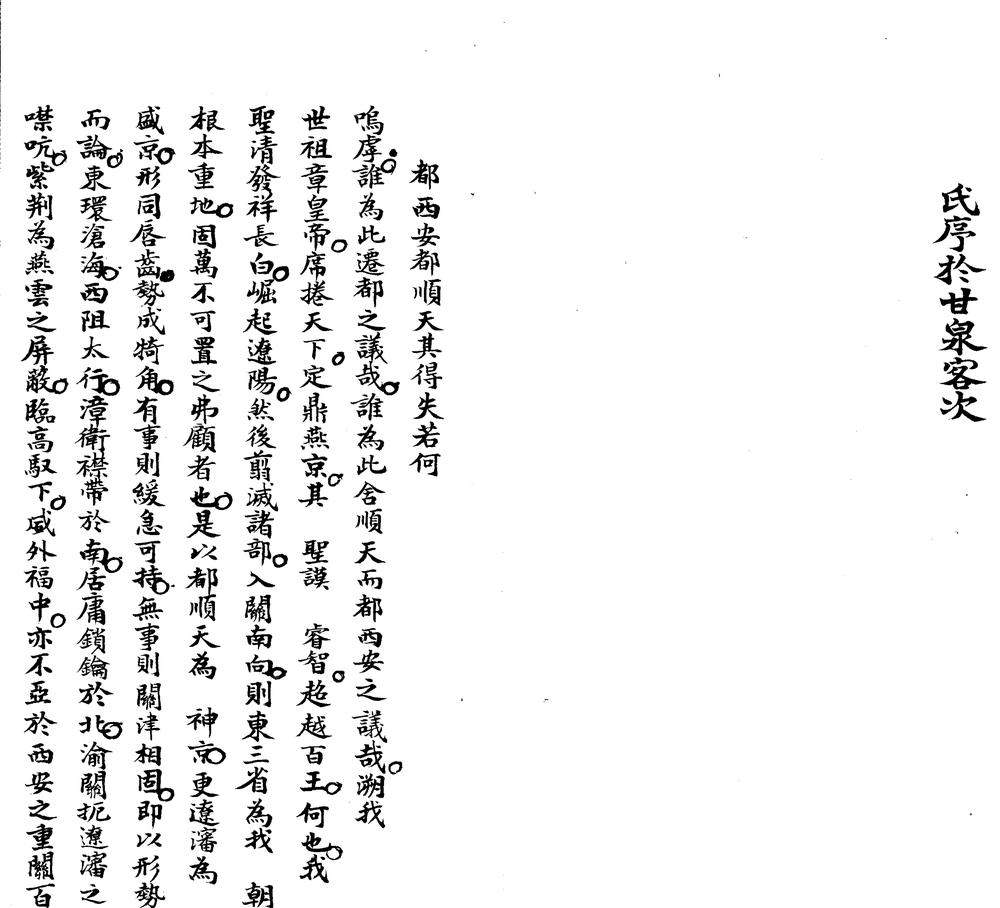 氏序於甘泉客次
都西安都順天其得失若何
嗚虖誰為此遷都之議哉誰為此舍順天而都西安之議哉溯我
世祖章皇帝席捲天下定鼎燕京其　聖謨　睿智超越百王何也我
聖清發祥長白崛起遼陽然後翦滅諸部入關南向則東三省為我　朝
根本重地固萬不可置之弗顧者也是以都順天為　神京更遼瀋為
盛京形同唇齒勢成犄角有事則緩急可持無事則關津相固即以形勢
而論東環滄海西阻太行漳衛襟帶於南居庸鎖鑰於北渝關扼遼瀋之
噤吭紫荆為燕雲之屏蔽臨高馭下威外福中亦不亞於西安之重關百